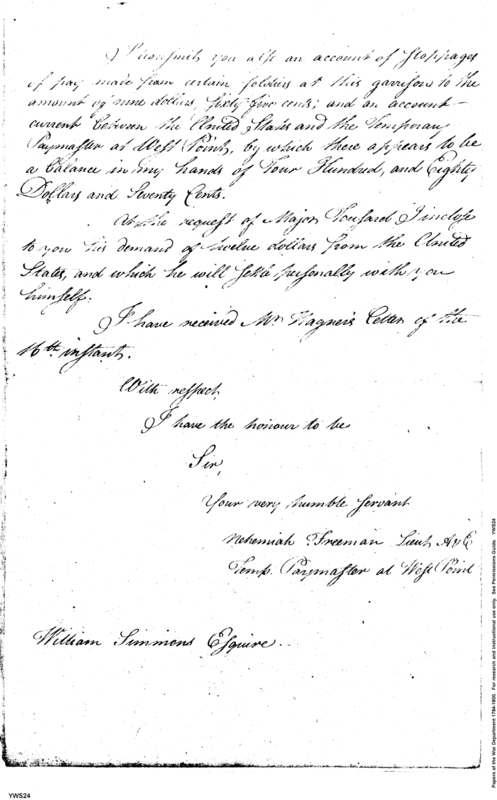 I transmit you also an account of stoppages
of pay made from certain soldiers at this garrison to the
amount of nine dollars, sixty five cents; and an account-
current between the United States and the Temporary
Paymaster at West Point, by which there appears to be
a balance in my hands of Four Hundred, and Eighty
Dollars and Seventy Cents.
At the request of Major Tousard I inclose
to you his demand of twelve dollars from the United
States, and which he will settle personally with you
himself.
I have received Mr. Wagner's Letter of the
16th instant.
With respect
I have the honour to be
Sir,
Your very humble servant
Nehemiah Freeman Lieut A&E
Temp. Paymaster at West Point
William Simmons Esquire.
YWS24
Papers of the War Department 1784-1800. For research and instructional use only. See Permissions Guide. YWS24